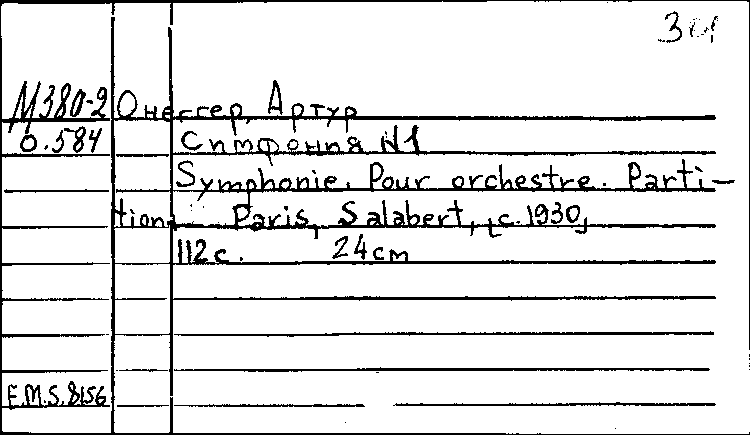 М380-2 Онеггер, Артур
0.584 Симфония №1
Symphonie. Pour orchestre. Parti-
tion. Paris, Salabert, [c. 1930]
112 c. 24 cm
E.M.S. 8156